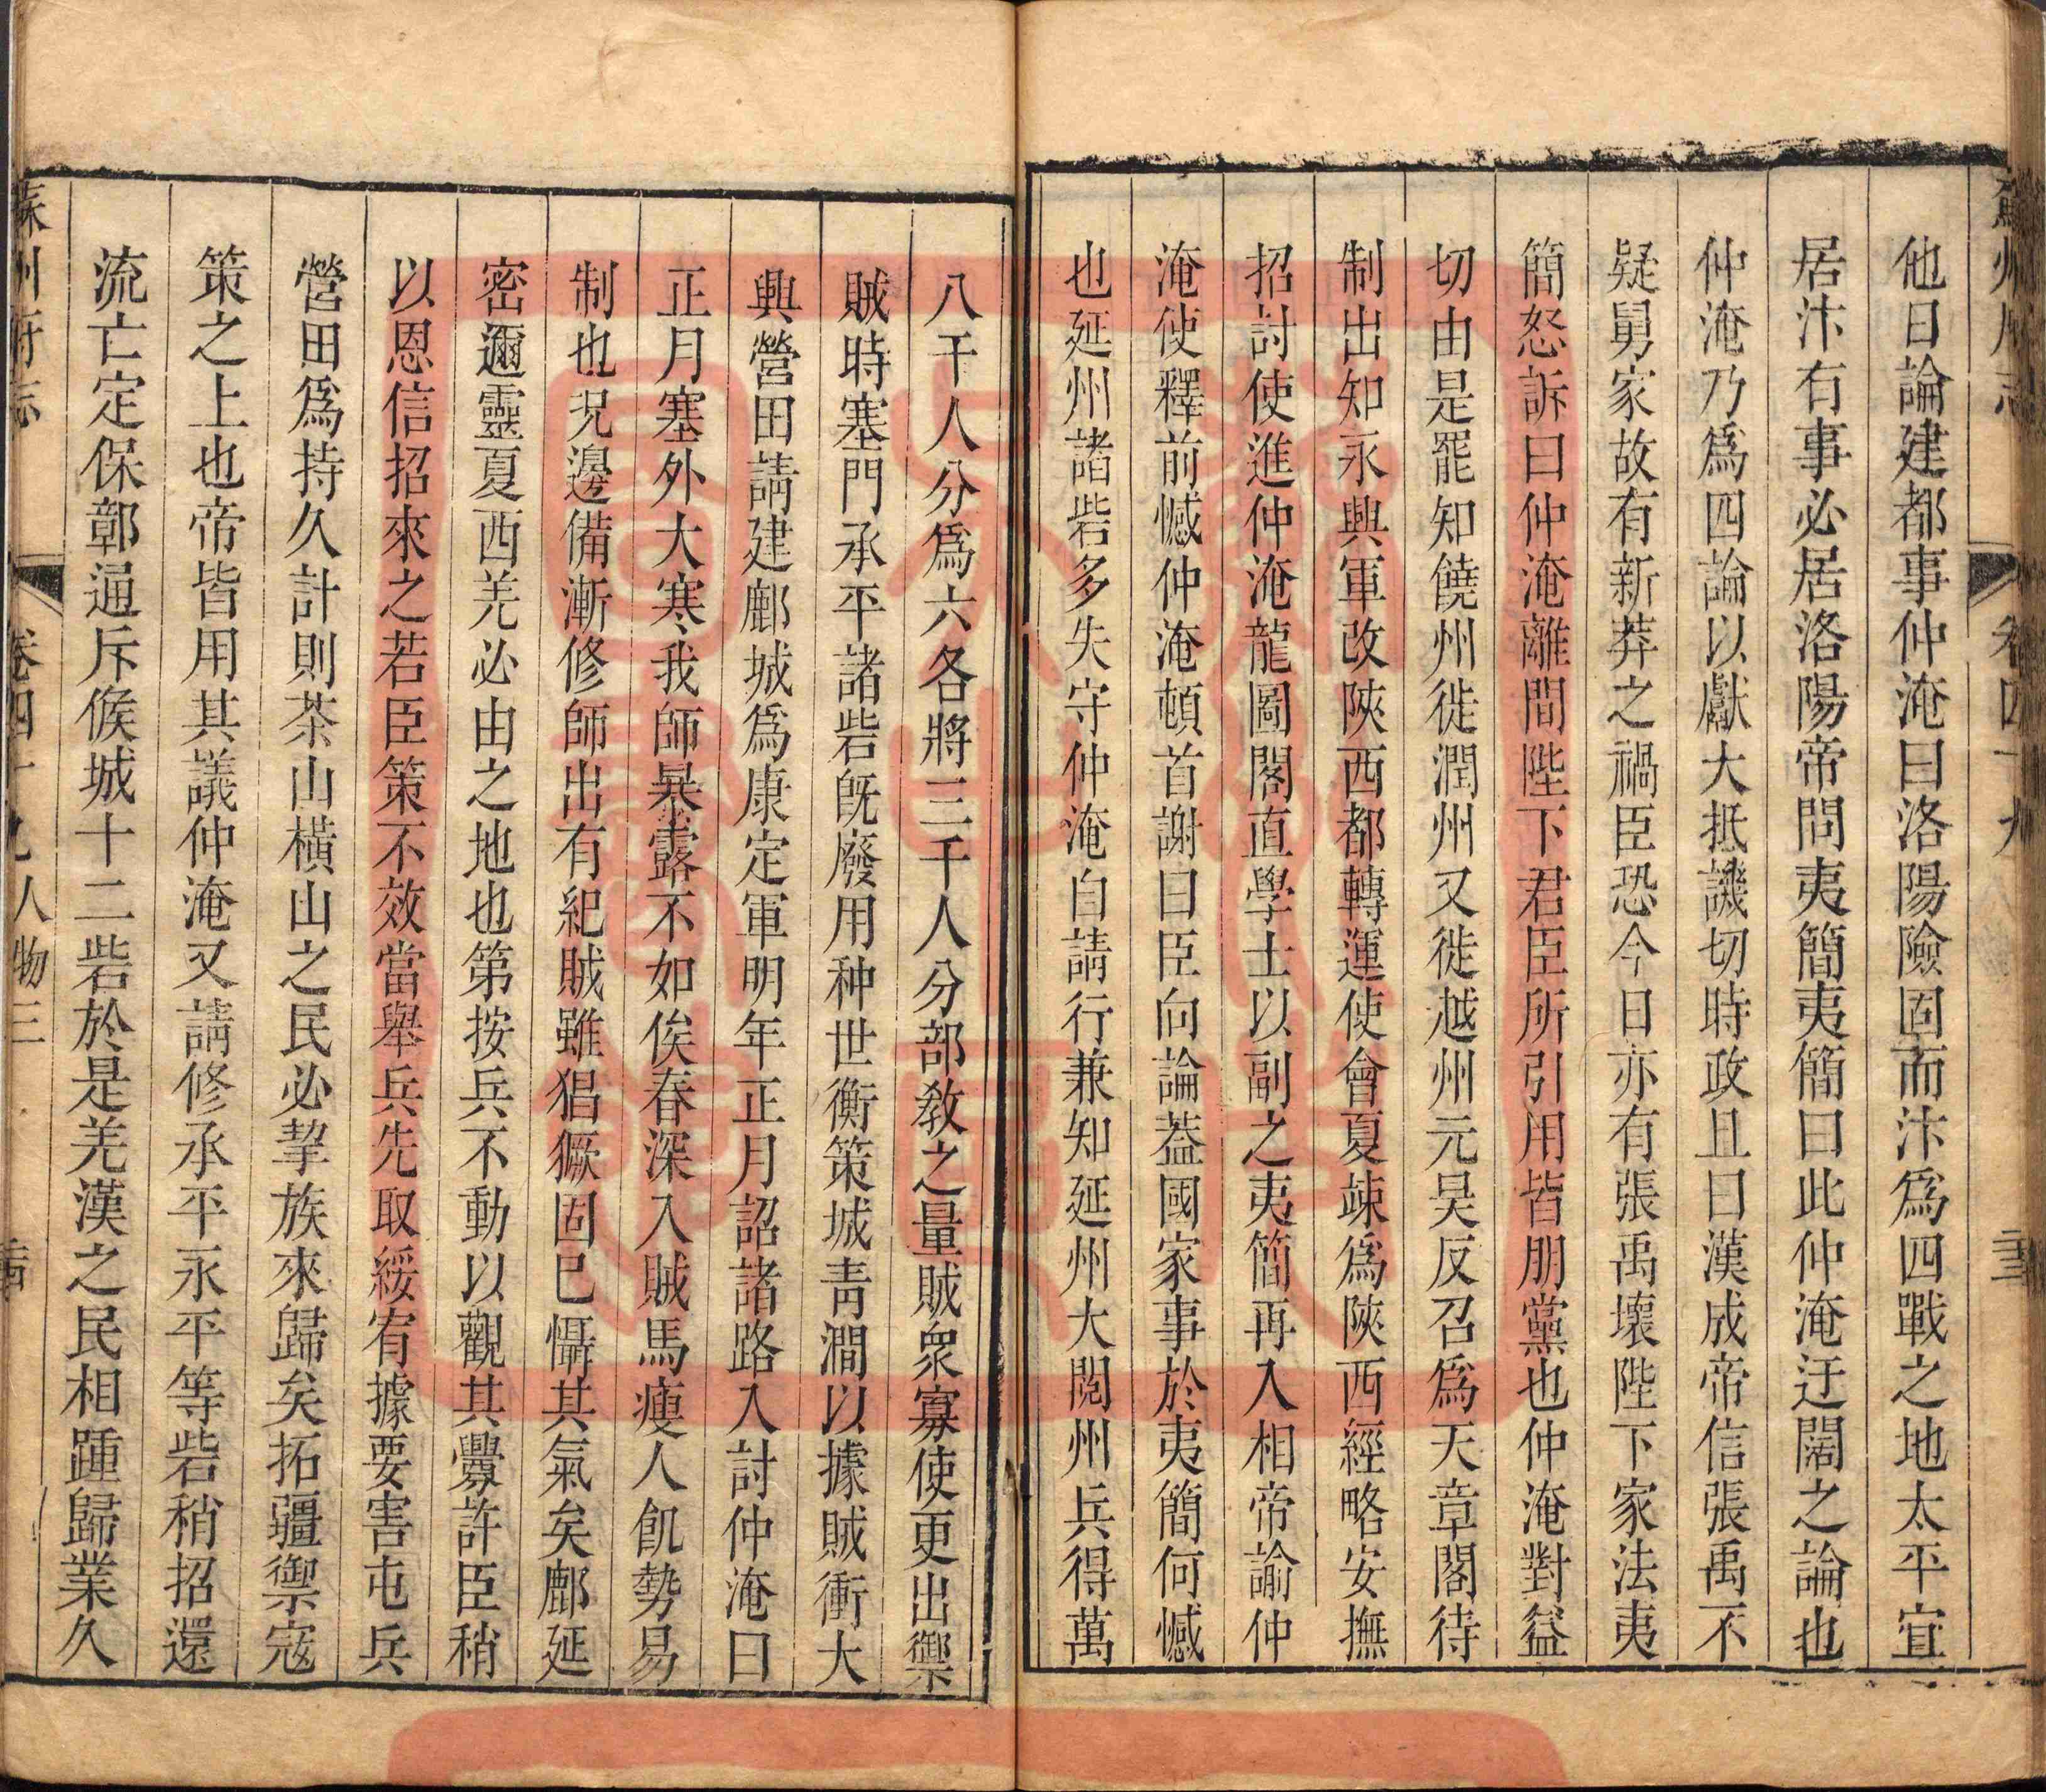 他日論建都事仲淹曰洛陽險固而汴爲四戰之地太平宜
居汴有事必居洛陽帝問夷簡夷簡曰此仲淹迂闊之論也
仲淹乃爲四論以獻大抵譏切時政且曰漢成帝信張禹不
疑舅家故有新莽之禍臣恐今日亦有張禹壞陛下家法夷
簡怒訴曰仲淹離間陛下君臣所引用皆朋黨也仲淹對益
切由是罷知饒州徙潤州又徙越州元昊反召爲天章閣待
制出知永興軍改陝西都轉運使會夏竦爲陝西經略安撫
招討使進仲淹龍圖閣直學士以副之夷簡再入相帝諭仲
淹使釋前憾仲淹頓首謝曰臣向論葢國家事於夷簡何憾
也延州諸砦多失守仲淹自請行兼知延州大閱州兵得萬
八千人分爲六各將三千人分部敎之量賊衆寡使更出禦
賊時塞門承平諸砦旣廢用种世衡策城青澗以據賊衝大
興營田請建鄜城爲康定軍明年正月詔諸路入討仲淹曰
正月塞外大寒我師暴露不如俟春深入賊馬瘦人飢勢易
制也況邊備漸修師出有紀賊雖猖獗固已懾其氣矣鄜延
密邇靈夏西羌必由之地也第按兵不動以觀其釁許臣稍
以恩信招來之若臣策不效當舉兵先取綏宥據要害屯兵
營田爲持久計則茶山橫山之民必挈族來歸矣拓疆禦寇
策之上也帝皆用其議仲淹又請修承平永平等砦稍招還
流亡定保鄣通斥候城十二砦於是羌漢之民相踵歸業久
蘇州府志
卷四十九人物三